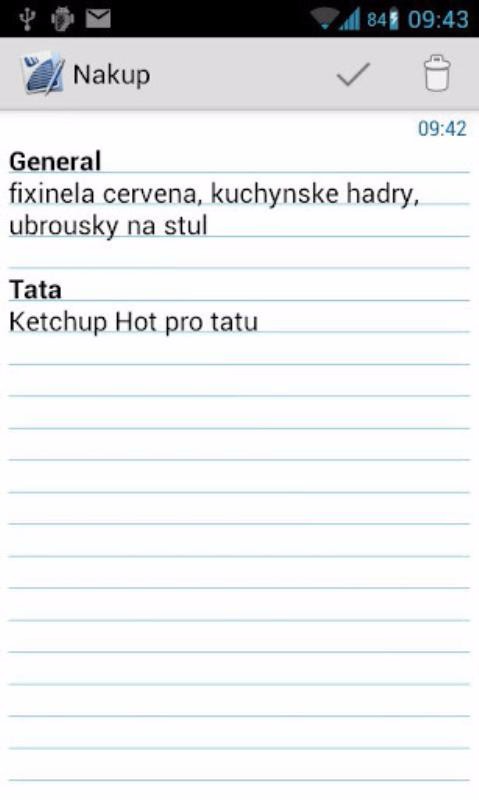 84 09:43
Nakup
09:42
General
fixinela cervena, kuchynske hadry,
ubrousky na stul
Tata
Ketchup Hot pro tatu